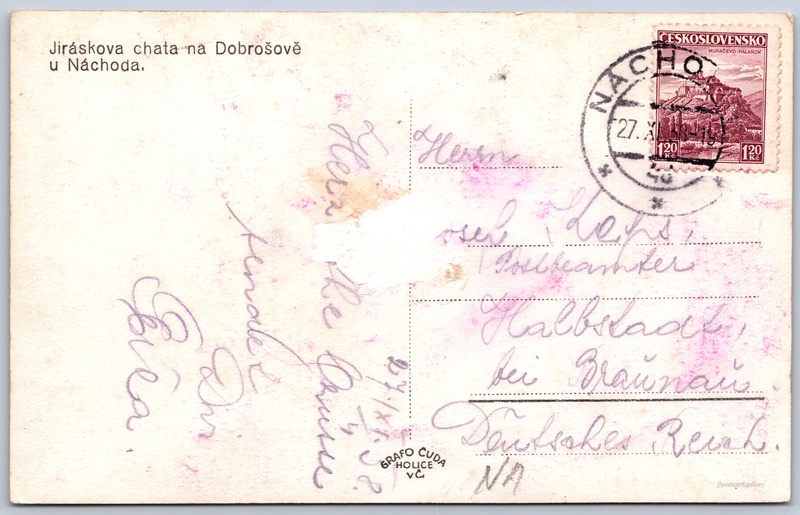 Jiráskova chata na Dobrošově
u Náchoda.
ČESKOSLOVENSKO
MUKAČEVO-PALANOK
1.20 Kč
1.20 Kč
NÁCHO
27. XI. 38-
Herrn
osef Laps,
Postbeamter
Halbstadt,
bei Braunau.
Deutsches Reich.
27./XI. 38.
Herz che Grüsse
sendet
Dir
GRAFO ČUDA
HOLICE
v Č.
NA